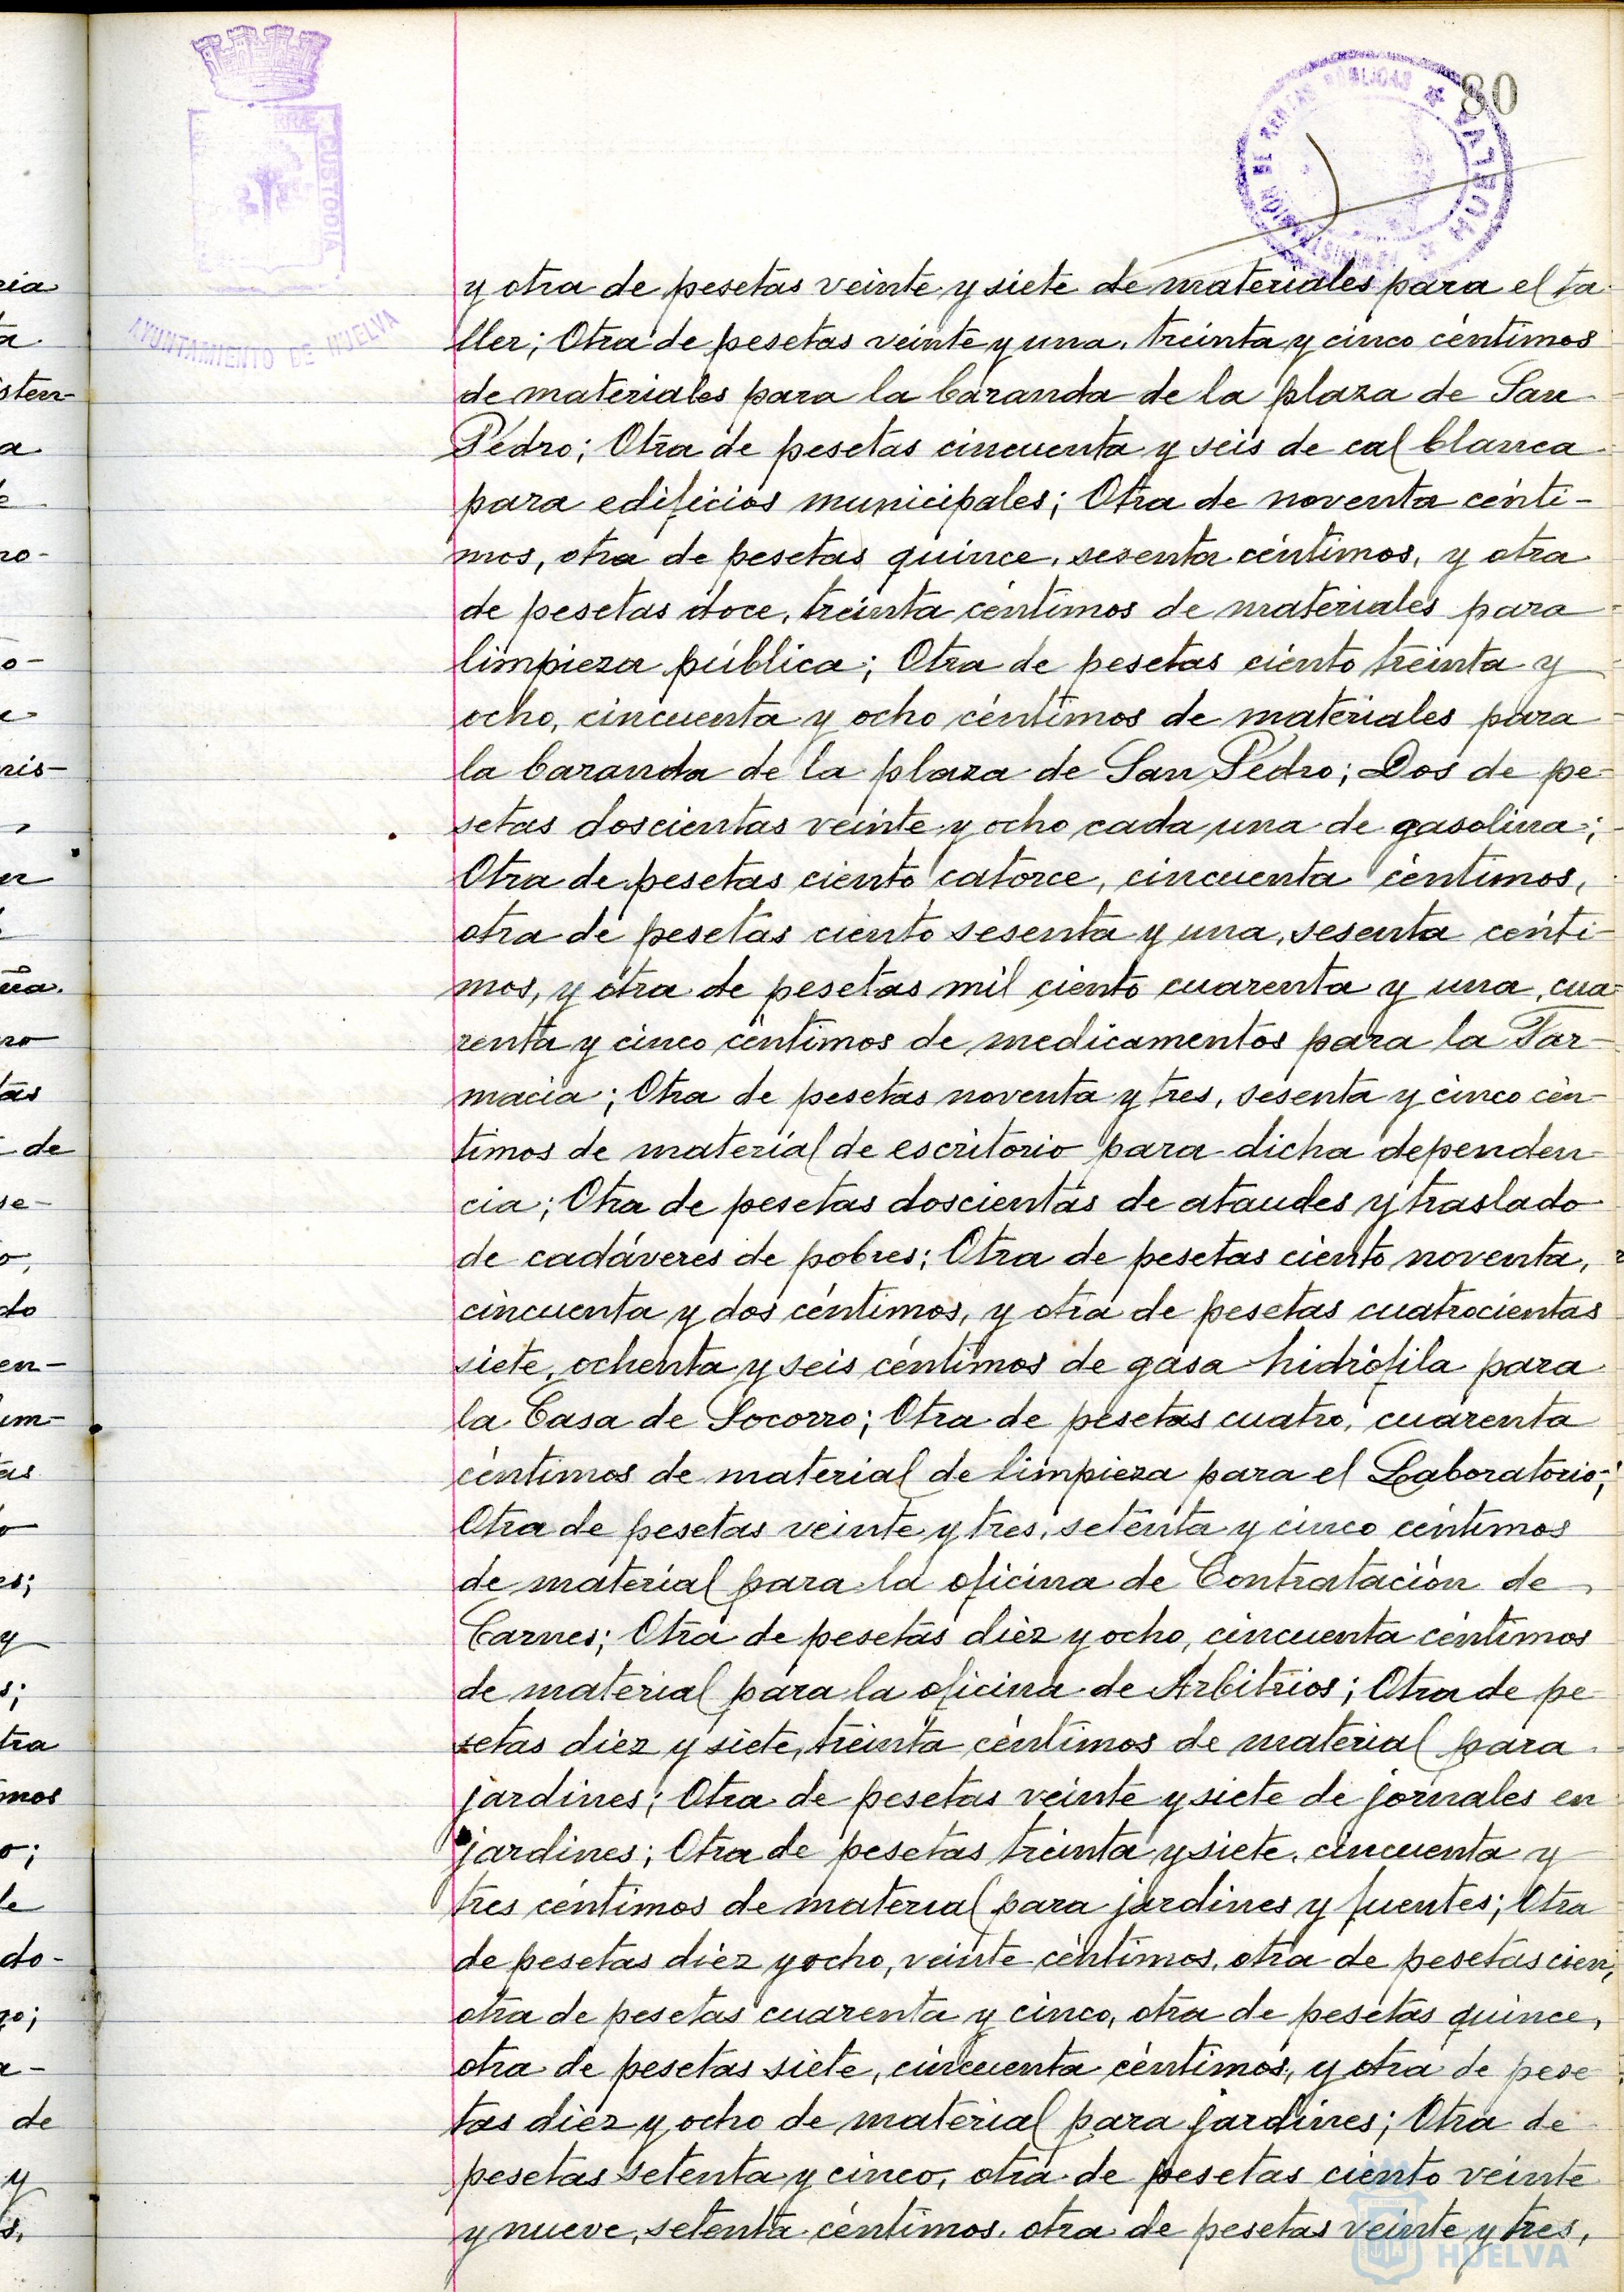 80
ADMINISTRACIÓN DE RENTAS PÚBLICAS * HUELVA *
CUSTODIA
AYUNTAMIENTO DE HUELVA
y otra de pesetas veinte y siete de materiales para el ta-
ller; Otra de pesetas veinte y una, treinta y cinco céntimos
de materiales para la baranda de la plaza de San
Pedro; Otra de pesetas cincuenta y seis de cal blanca
para edificios municipales; Otra de noventa cénti-
mos, otra de pesetas quince, sesenta céntimos, y otra
de pesetas doce, treinta céntimos de materiales para
limpieza pública; Otra de pesetas ciento treinta y
ocho, cincuenta y ocho céntimos de materiales para
la baranda de la plaza de San Pedro; Dos de pe-
setas doscientas veinte y ocho cada una de gasolina;
Otra de pesetas ciento catorce, cincuenta céntimos,
otra de pesetas ciento sesenta y una, sesenta cénti-
mos, y otra de pesetas mil ciento cuarenta y una, cua-
renta y cinco céntimos de medicamentos para la Far-
macia; Otra de pesetas noventa y tres, sesenta y cinco cén-
timos de material de escritorio para dicha dependen-
cia; Otra de pesetas doscientas de ataudes y traslado
de cadáveres de pobres; Otra de pesetas ciento noventa,
cincuenta y dos céntimos, y otra de pesetas cuatrocientas
siete, ochenta y seis céntimos de gasa hidrófila para
la Casa de Socorro; Otra de pesetas cuatro, cuarenta
céntimos de material de limpieza para el Laboratorio;
Otra de pesetas veinte y tres, setenta y cinco céntimos
de material para la oficina de Contratación de
Carnes; Otra de pesetas diez y ocho, cincuenta céntimos
de material para la oficina de Arbitrios; Otra de pe-
setas diez y siete, treinta céntimos de material para
jardines; Otra de pesetas veinte y siete de jornales en
jardines; Otra de pesetas treinta y siete, cincuenta y
tres céntimos de material para jardines y fuentes; Otra
de pesetas diez y ocho, veinte céntimos, otra de pesetas cien,
otra de pesetas cuarenta y cinco, otra de pesetas quince,
otra de pesetas siete, cincuenta céntimos, y otra de pese-
tas diez y ocho de material para jardines; Otra de
pesetas setenta y cinco, otra de pesetas ciento veinte
y nueve, setenta céntimos, otra de pesetas veinte y tres,
HUELVA